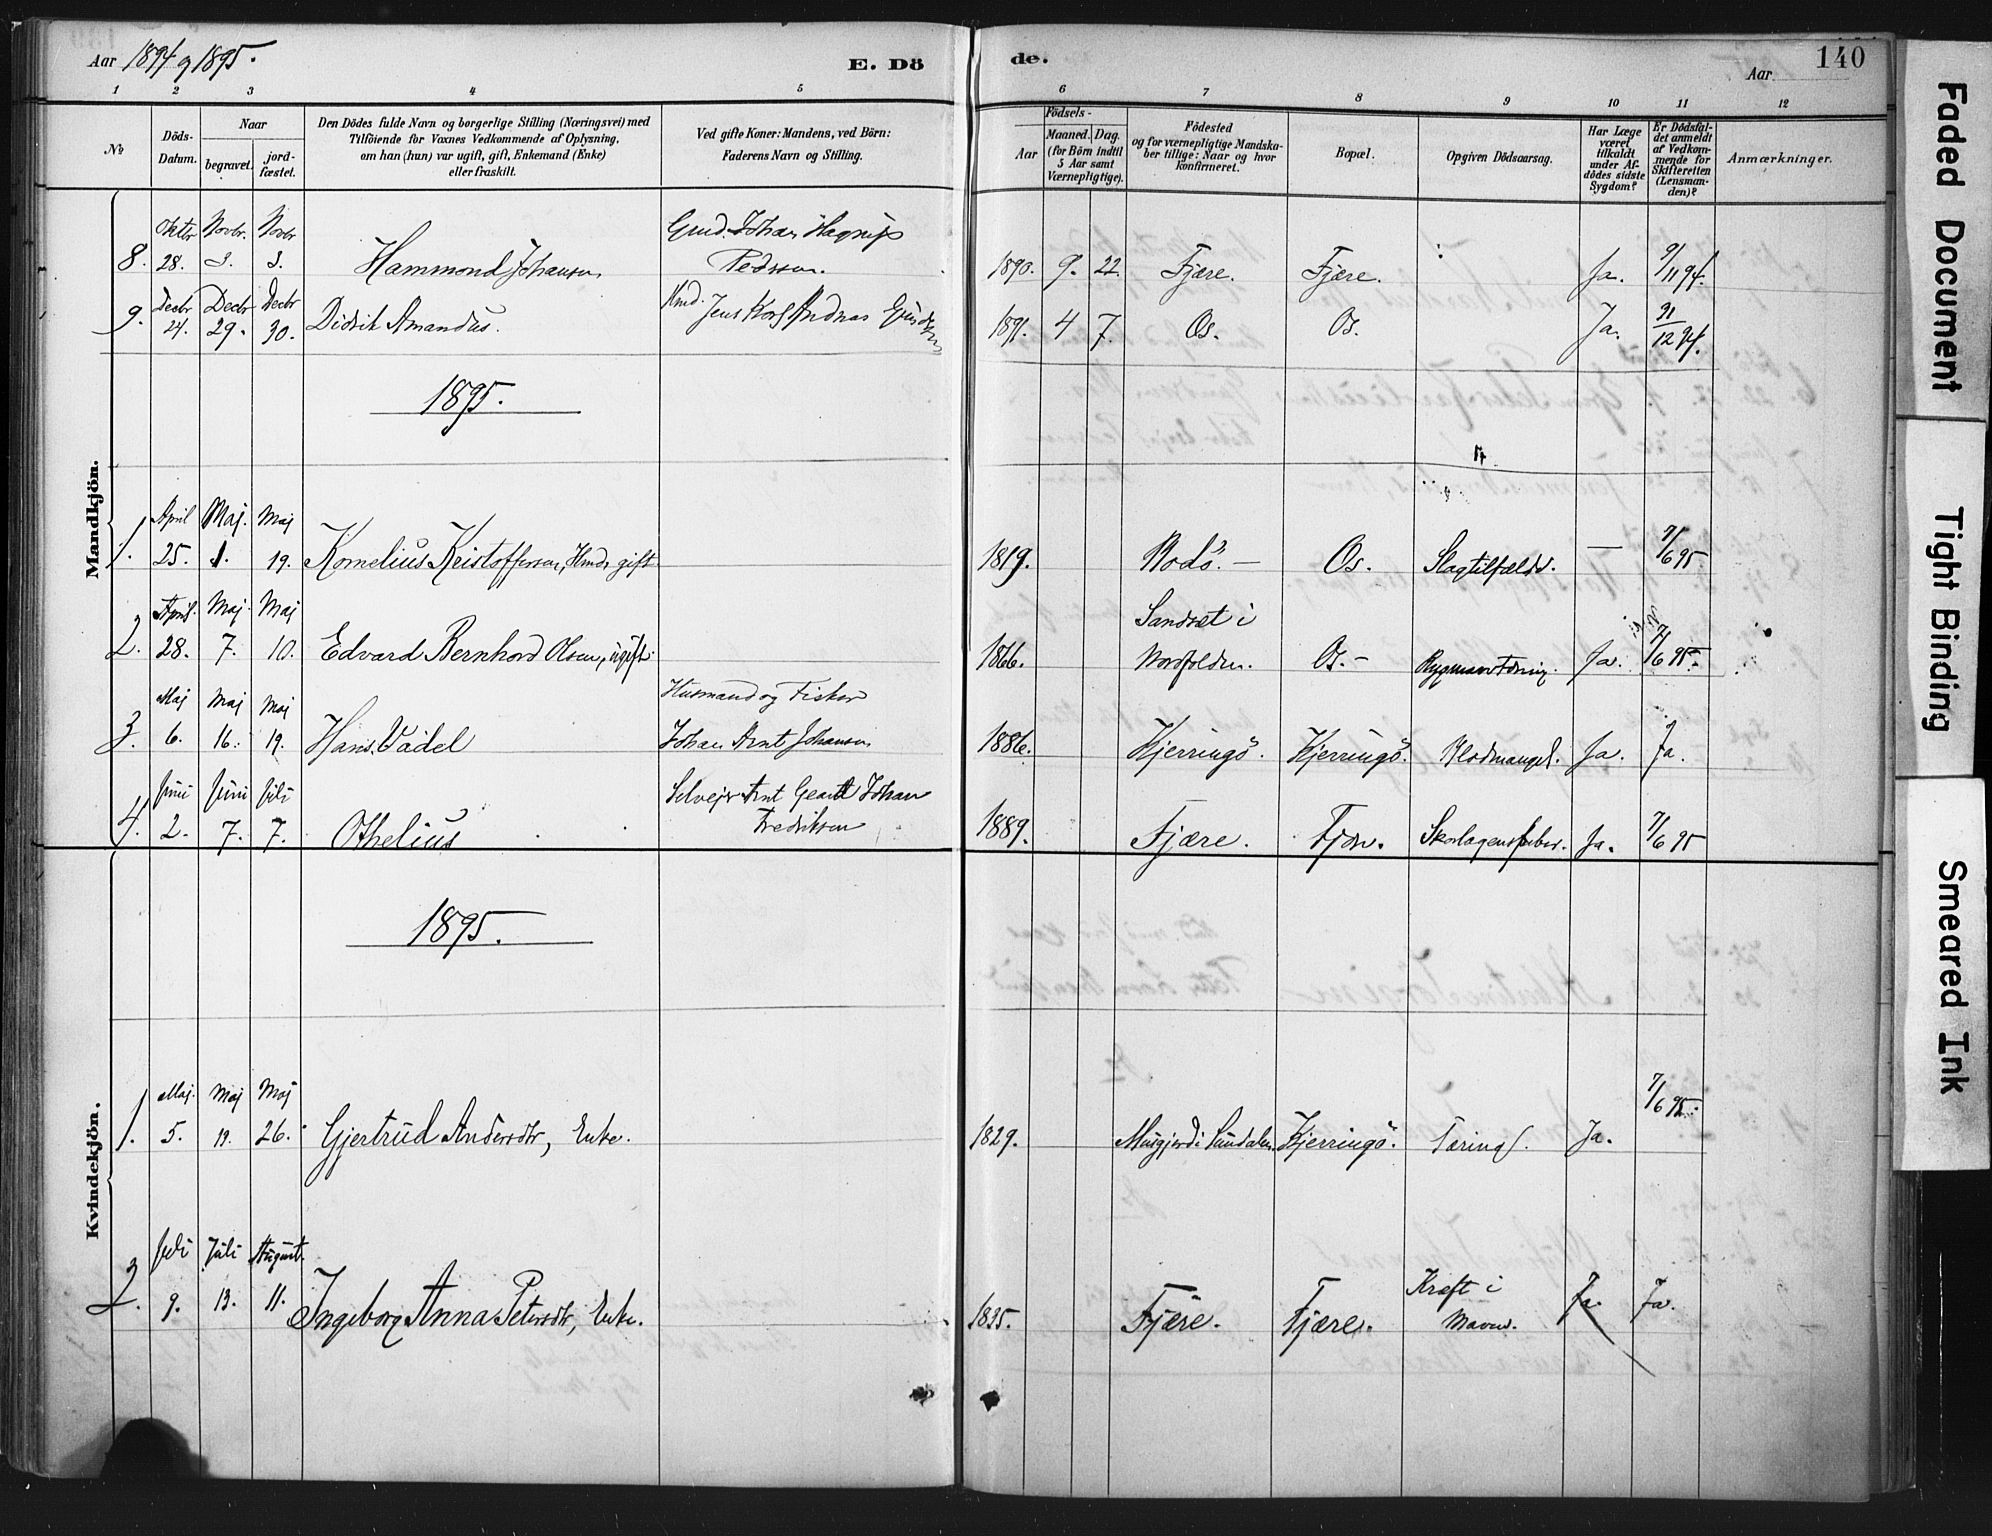 Aar 1894 og 1895.
E. Döde.
Aar
140
1 2 3 4 5 6 7 8 9 10 11 12
No
Döds-Datum.
Naar
begravet.
jord-fæstet.
Den Dödes fulde Navn og borgerlige Stilling (Næringsvei) med
Tilföiende for Voxnes Vedkommende af Oplysning,
om han (hun) var ugift, gift, Enkemand (Enke)
eller fraskilt.
Ved gifte Koner: Mandens, ved Börn:
Faderens Navn og Stilling.
Födsels-
Aar
Maaned. Dag.
(for Börn indtil
5 Aar samt
Værnepligtige).
Födested
og for værnepligtige Mandska-
ber tillige: Naar og hvor
konfirmeret.
Bopæl.
Opgiven Dödsaarsag.
Har Læge
været
tilkaldt
under Af-
dödes sidste
Sygdom?
Er Dödsfal-
det anmeldt
af Vedkom-
mende for
Skifteretten
(Lensman-
den)?
Anmærkninger.
Mandkjön.
Oktbr Novbr. Novbr Gmd. Johan Hagrup
8. 28. 3. 3. Hammond Johansen Pedersen. 1890. 9. 22. Fjære. Fjære. Ja. 9/11 94.
Decbr Decbr Decbr
9. 24. 29. 30. Didrik Amandus. Hmd. Jens Andreas 1891. 4 7. Os. Os. Ja. 31/12 94.
1895.
April Maj. Maj
1. 25. 1. 19. Kornelius Kristoffersen, Hmd, gift 1819. Bodö. — Os. Slagtilfælde. — 7/6 95
April. Maj. Maj Sandset i
2. 28. 7. 10. Edvard Bernhard Olsen, ugift. 1866. Nordfolden. Os. - Rygmarvstæring. Ja. 7/6 95.
Maj Maj Maj Husmand og Fisker
3. 6. 16. 19. Hans Vadel Johan Arnt Johansen 1886. Kjerringö. Kjerringö. Blodmangel. Ja. Ja.
Juni Juni Juli Selvejer Arnt Johan
4. 2. 7. 7. Othelius Fredriksen 1889. Fjære. Fjære. Skarlagensfeber. Ja. 7/6 95
Kvindekjön.
1895.
Maj. Maj Maj
1. 5. 19. 26. Gjertrud Andersdtr, Enke. 1829. Musgjerd i Sundalen. Kjerringö. Tæring. Ja. 7/6 95.
Juli Juli August. Kræft i
2. 9. 13. 11. Ingeborg Anna Petersdtr, Enke. 1825. Fjære. Fjære. Maven. Ja. Ja.
Faded Document
Tight Binding
Smeared Ink